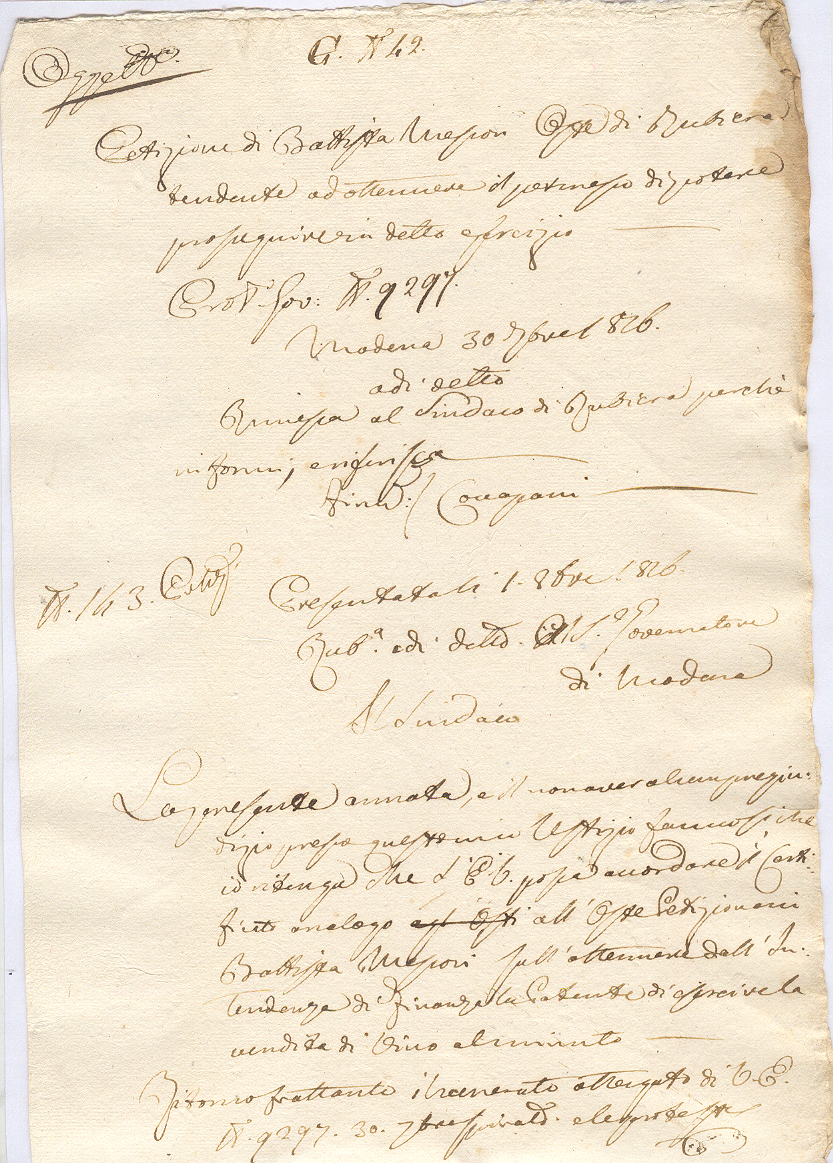 Oggetto.
G. N. 42.
Petizione di Battista Messori Oste di Rubiera
tendente ad ottennere il permesso di potere
proseguire in detto esercizio
Prot. Gov: N. 9297.
Modena 30 7bre 1826.
adi detto
Rimessa al Sindaco di Rubiera perchè
informi, e riferisca
Firmd: Coccapani
N. 143.
Presentata li 1. 8bre 1826.
Rub.a adi detto. Al S.r Governatore
di Modena
Il Sindaco
La presente annata, e il non aver alcun pregiu:
dizio presso questo mio Uffizio fanno si che
io ritenga che L' E. V. possa accordare il Certi:
ficato analogo agl' Osti all' Oste Petizionario
Battista Messori sull' ottennere dall' In:
tendenza di Finanza la Patente di esercire la
vendita di Vino al minuto
Ritorno frattanto il venerato attergato di V. E.
N. 9297. 30. 7bre e le protesto